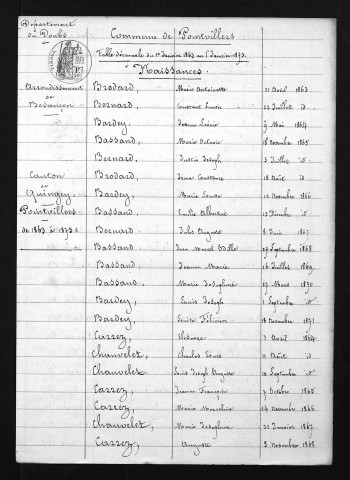 Département
du Doubs
Commune de Pointvillers
Table décennale du 1er Janvier 1863 au 1er Janvier 1873.
Naissances.
Arrondissement
de
Besançon
Canton
de
Quingey
Pointvillers
de 1863 à 1873
Brodard, Marie Antoinette 21 Avril 1863
Bernard, Constant Louis 22 Juillet id
Bardey, Jeanne Louise 9 Mai 1864
Bassand, Marie 18 Novembre 1865
Bernard, Justin Joseph 3 Juillet id
Brodard, Constance 18 Août id
Bardey, Marie Louise 12 Novembre 1866
Bassand, Emilie Albertine 13 Décembre id
Bernard, Jules Auguste 8 Juin 1867
Bassand, Jean Marcel 27 Septembre 1868
Bassand, Jeanne Marie 16 Juillet 1869
Bassand, Marie Joséphine 27 Mars 1870
Bardey, Louis Joseph 1 Septembre id
Bardey, Louise Félicien 18 Novembre 1871
Carrez, Eléonore 3 Avril 1864
Chauvelet, Charles Louis 11 Août id
Chauvelet Louis Joseph Auguste 10 Septembre id
Carrez, Jeanne Françoise 7 Octobre 1865
Carrez, Marie Marceline 24 Novembre 1866
Chauvelet, Marie Joséphine 22 Janvier 1867
Carrez, Auguste 5 Novembre 1868